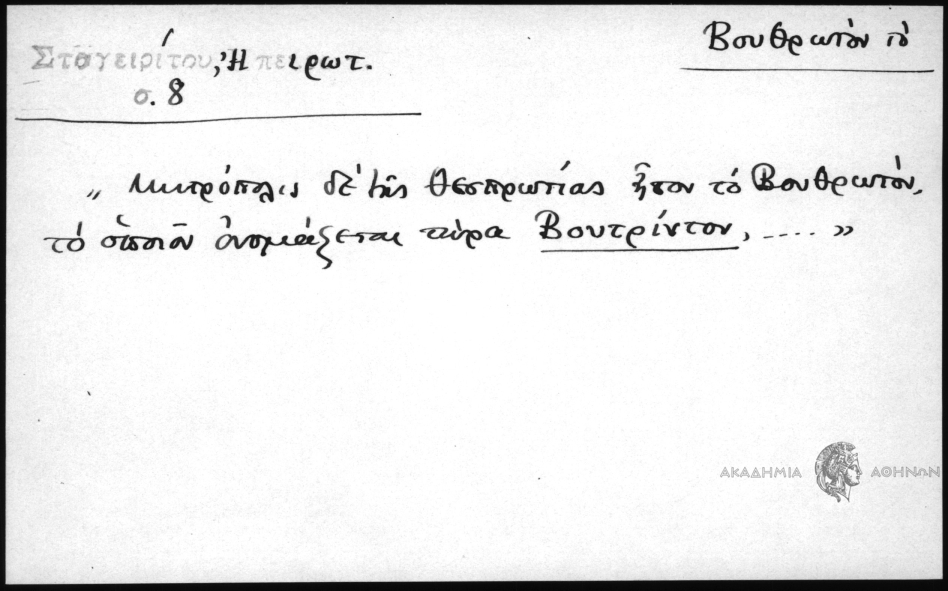 Βουθρωτὸν τὸ
Σταγειρίτου, Ἠπειρωτ.
σ. 8
„ Μητρόπολις δὲ τῆς Θεσπρωτίας ἦτον τὸ Βουθρωτὸν,
τὸ ὁποῖον ὀνομάζεται τώρα Βουτρίντον, ..... ”
ΑΚΑΔΗΜΙΑ ΑΘΗΝΩΝ